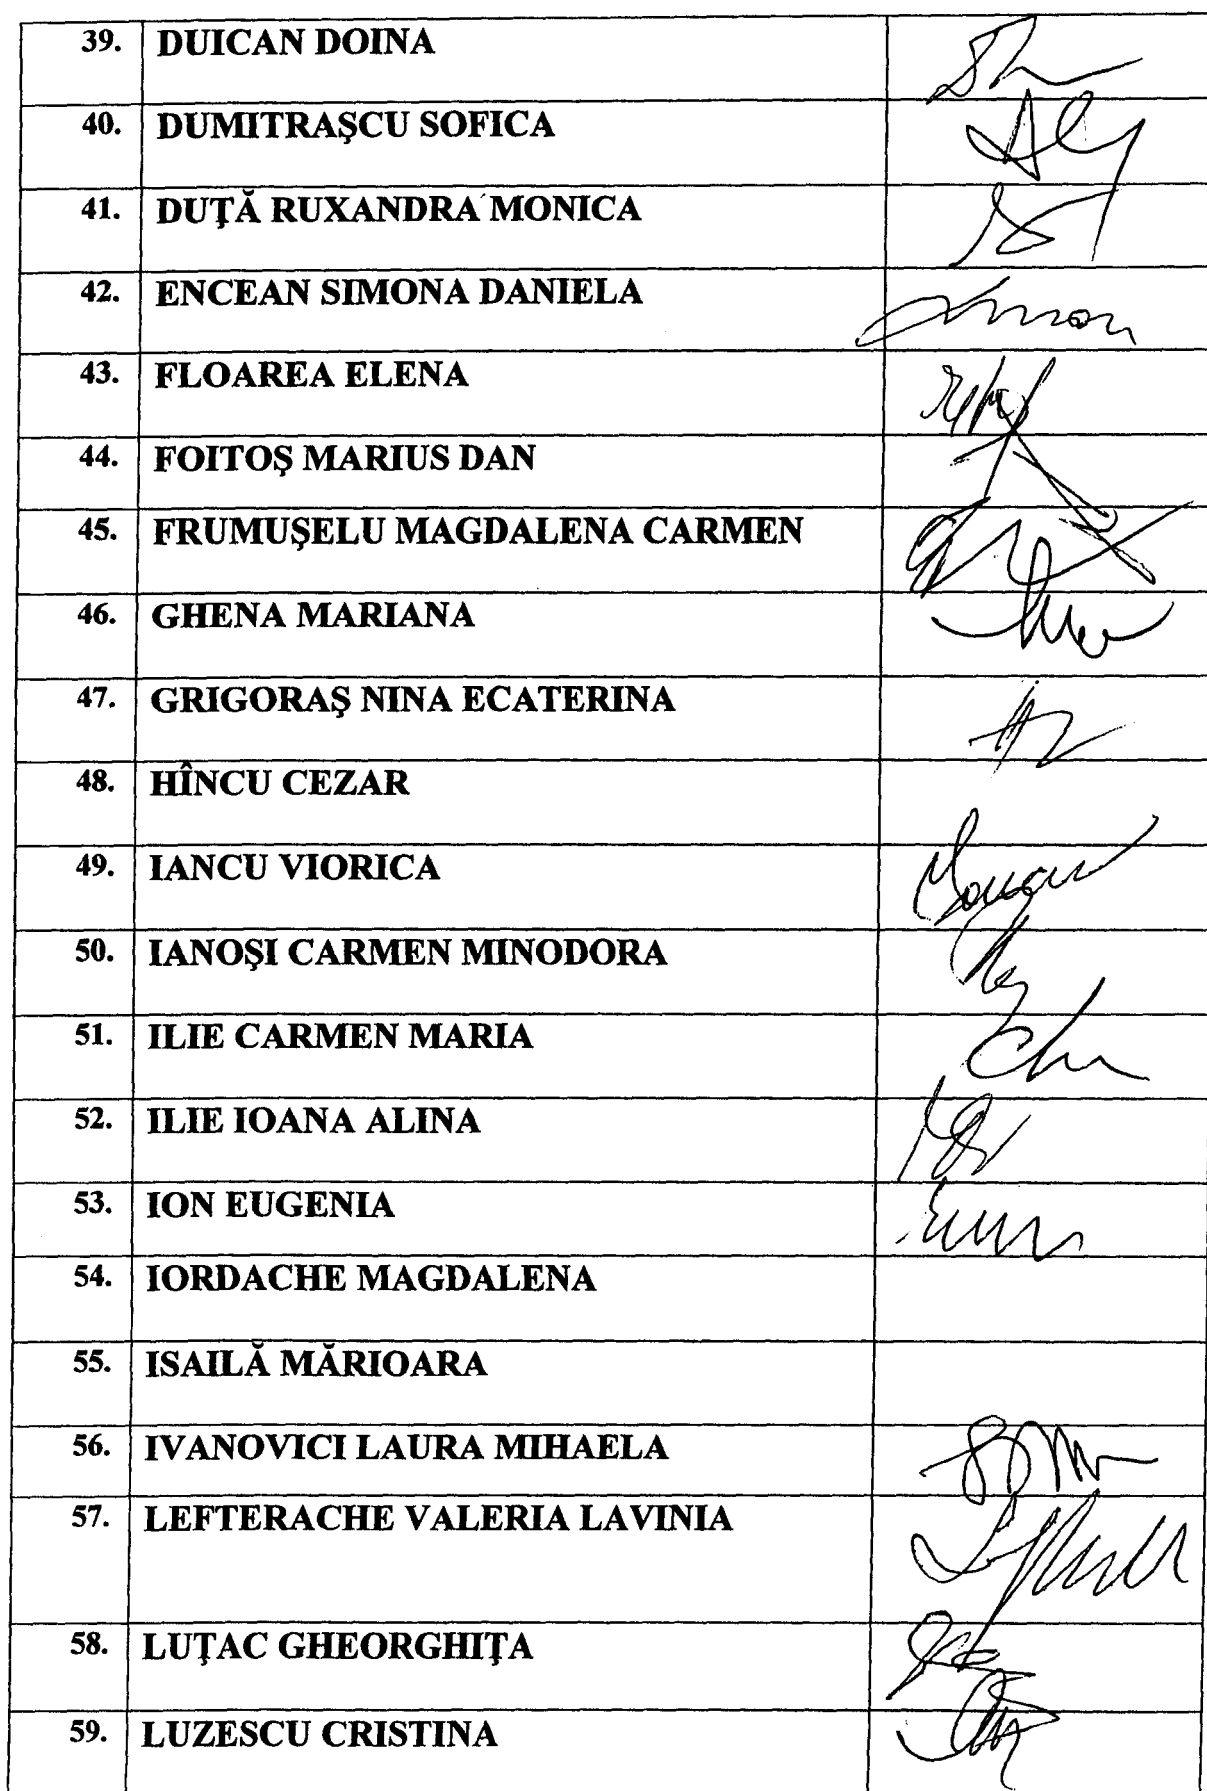 39. DUICAN DOINA
40. DUMITRAŞCU SOFICA
41. DUŢĂ RUXANDRA MONICA
42. ENCEAN SIMONA DANIELA
43. FLOAREA ELENA
44. FOITOŞ MARIUS DAN
45. FRUMUŞELU MAGDALENA CARMEN
46. GHENA MARIANA
47. GRIGORAŞ NINA ECATERINA
48. HÎNCU CEZAR
49. IANCU VIORICA
50. IANOŞI CARMEN MINODORA
51. ILIE CARMEN MARIA
52. ILIE IOANA ALINA
53. ION EUGENIA
54. IORDACHE MAGDALENA
55. ISAILĂ MĂRIOARA
56. IVANOVICI LAURA MIHAELA
57. LEFTERACHE VALERIA LAVINIA
58. LUŢAC GHEORGHIŢA
59. LUZESCU CRISTINA